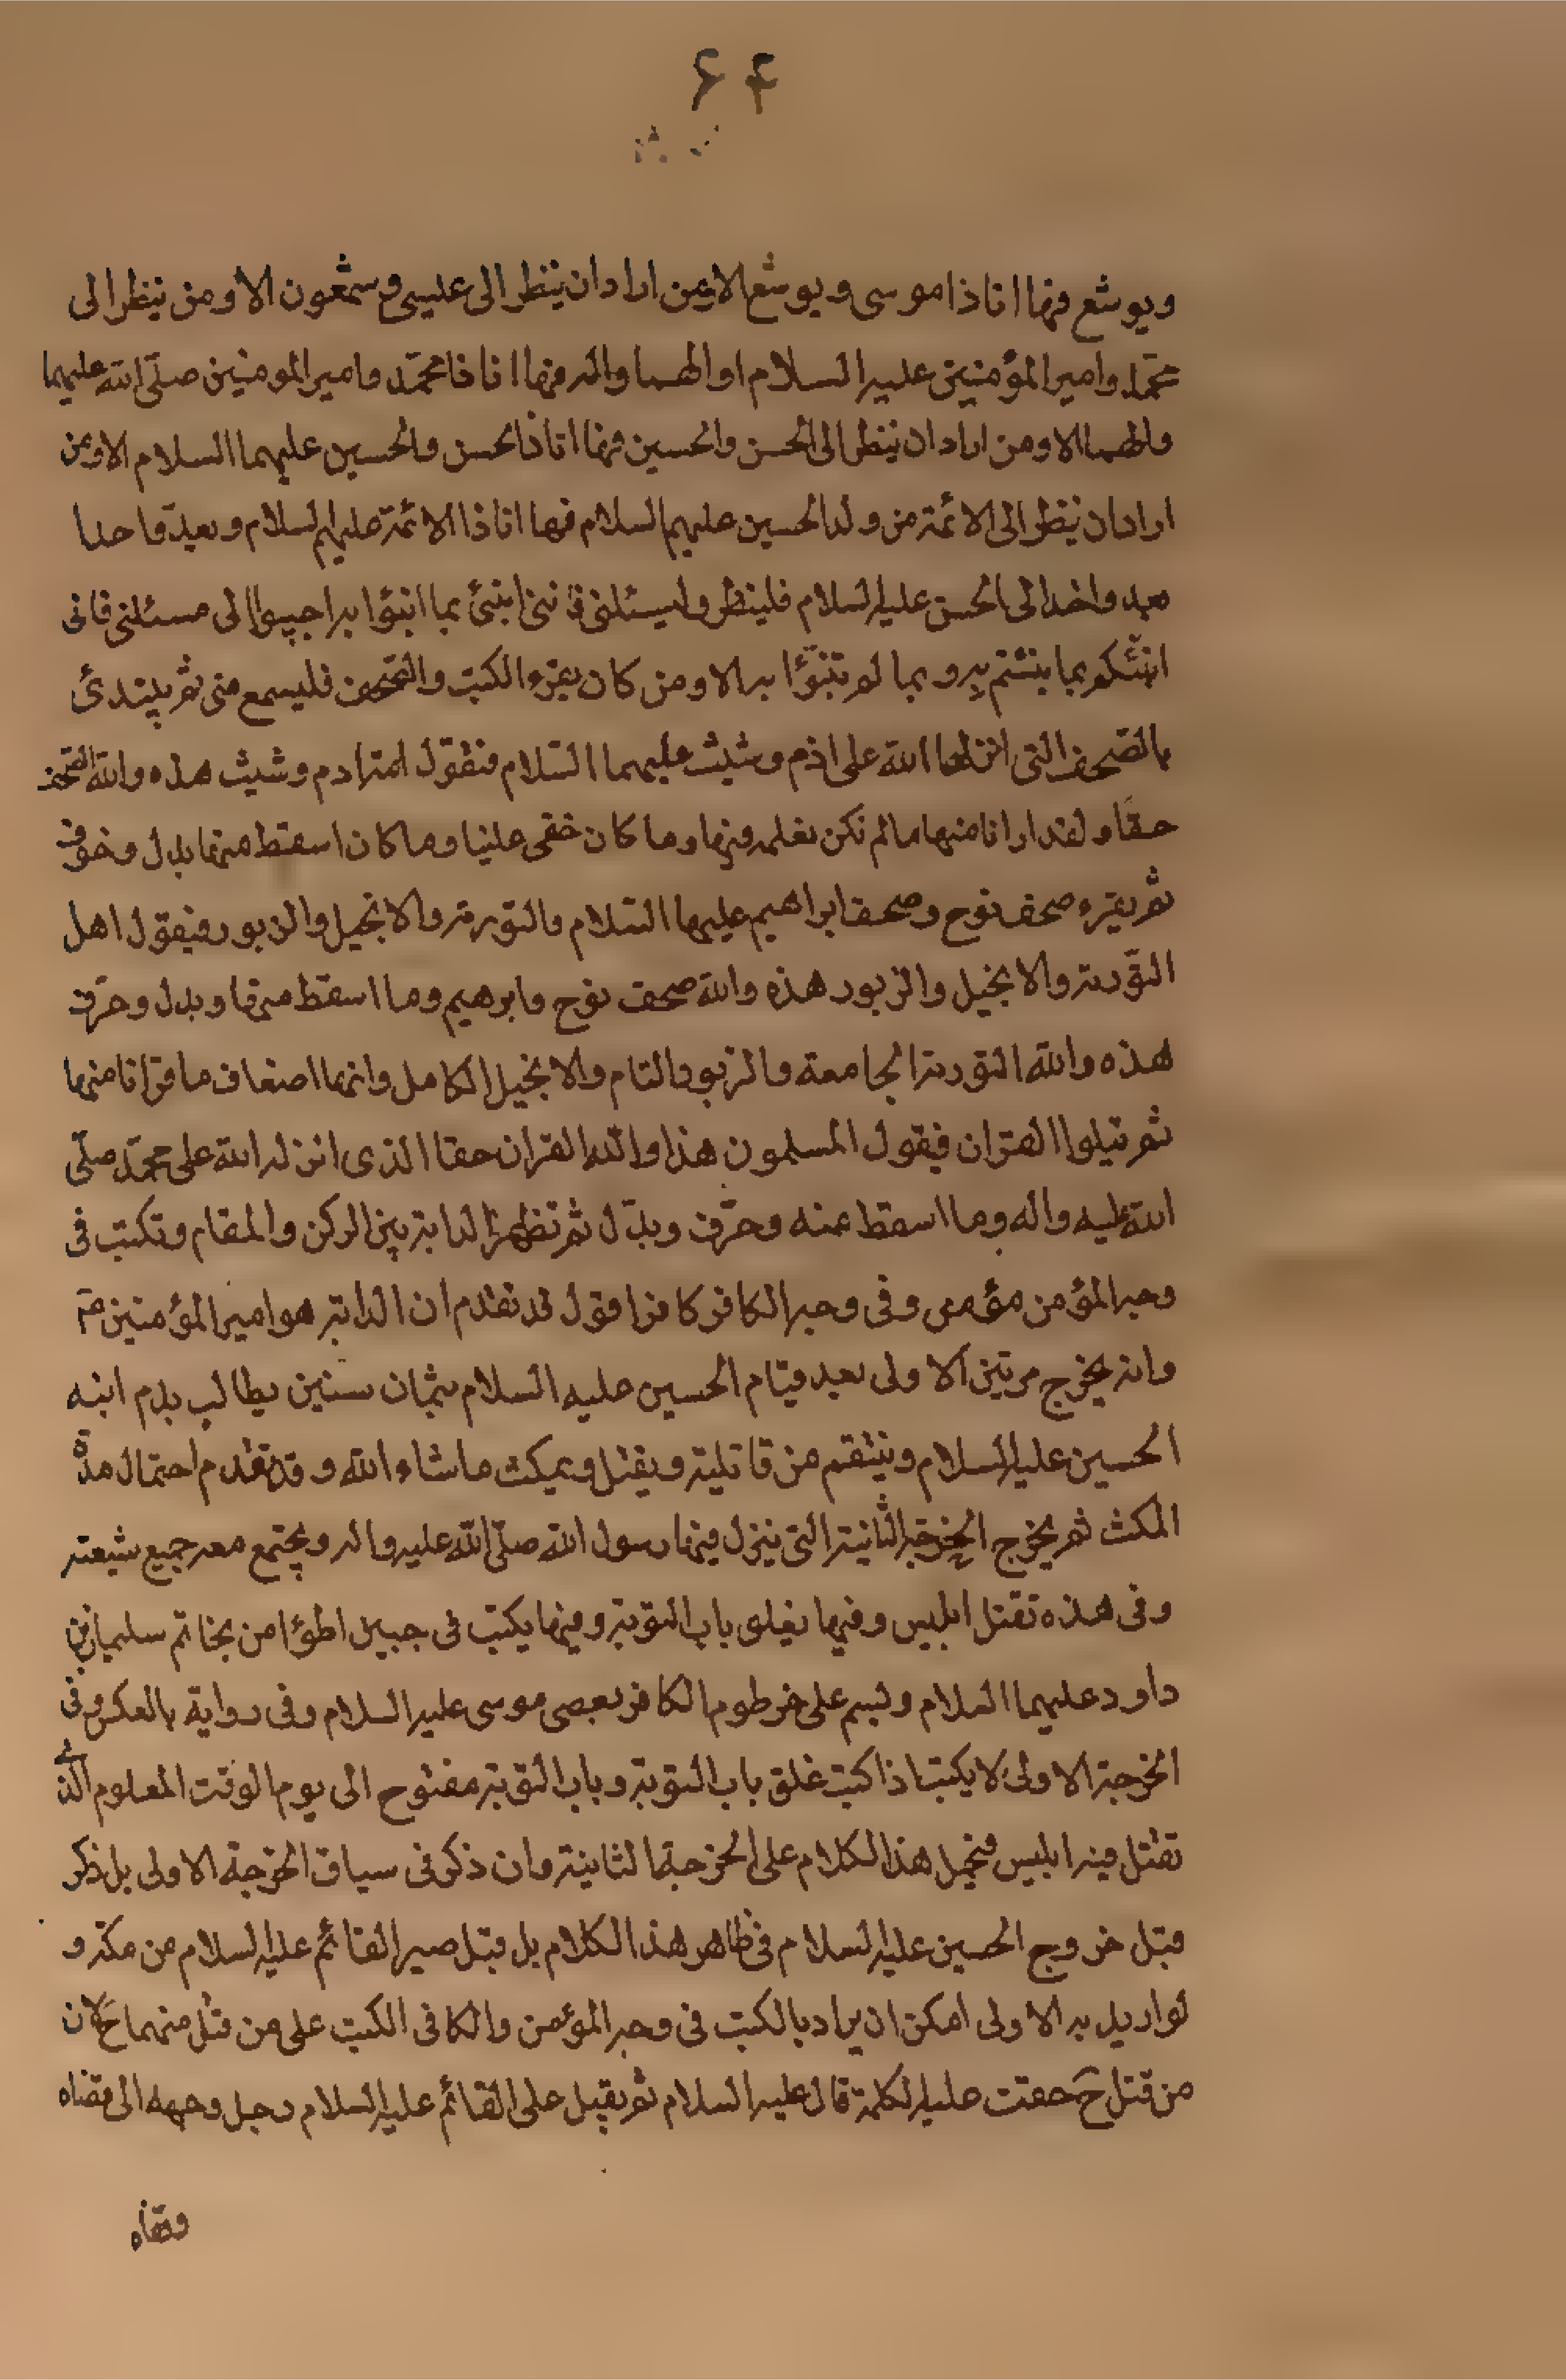 ۶۴
ويوشع فها انا ذا موسى ويوشع الا ومن اراد ان ينظر الى عيسى وشمعون الا ومن ينظر الى
محمّد وامير المؤمنين عليه السلام او الهما واله فها انا ذا محمّد وامير المومنين صلّى الله عليهما
والهما الا ومن اراد ان ينظر الى الحسن والحسين فها انا ذا الحسن والحسين عليهما السلام الا ومن
اراد ان ينظر الى الائمة من ولد الحسين عليهم السلام فها انا ذا الائمة عليهم السلام وبعد واحدا
بعد واحد الى الحسن عليه السلام فلينظر وليسئلنى فاننى انبئ بما انبؤا به اجيبوا الى مسئلتى فانى
انبّئكم بما نبئتم به وبما لم تنبؤا به الا ومن كان يقرء الكتب والصّحف فليسمع منى ثم يبتدئ
بالصّحف التى انزلها الله على ادم وشيث عليهما السّلام فتقول امة ادم وشيث هذه والله الصّحف
حقّا ولقد ارانا منها ما لم نكن نعلمه فيها وما كان خفى علينا وما كان اسقط منها بدل وحرّف
ثم يقرء صحف نوح وصحف ابراهيم عليهما السّلام والتورية والانجيل والزبور فيقول اهل
التّورية والانجيل والزبور هذه والله صحف نوح وابرهيم وما اسقط منها وبدل وحرّف
هذه والله التورية الجامعة والزبور التام والانجيل الكامل وانها اضعاف ما قرانا منها
ثم تيلوا القران فيقول المسلمون هذا والله القران حقا الذى انزله الله على محمّد صلّى
الله عليه واله وما اسقط عنه وحرّف وبدّل ثم تظهر الدابة بين الركن والمقام وتكتب فى
وجه المؤمن مؤمن وفى وجه الكافر كافرا قول قد تقدم ان الدابة هو امير المؤمنين عم
وانه يخرج مرتين الاولى بعد قيام الحسين عليه السلام بثمان سنين يطالب بدم ابنه
الحسين عليه السلام وينتقم من قاتليه ويقتل ويمكث ما شاء الله وقد تقدم احتمال مدّة
المكث ثم يخرج الخرجة الثانية التى ينزل فيها رسول الله صلّى الله عليه واله ويجتمع معه جميع شيعته
وفى هذه تقتل ابليس وفيها يغلق باب التوبة وفيها يكتب فى جبين المؤمن بخاتم سليمان بن
داود عليهما السلام ويسم على خرطوم الكافر بعصى موسى عليه السلام وفى رواية بالعكس وفى
الخرجة الاولى لا يكتب اذا كتب غلق باب التوبة وباب التوبة مفتوح الى يوم الوقت المعلوم الذى
تقتل فيه ابليس فيحمل هذا الكلام على الخرجة الثانية وان ذكر فى سياق الخرجة الاولى بل ذكر
قبل خروج الحسين عليه السلام فى ظاهر هذا الكلام بل قبل صير القائم عليه السلام من مكة و
لو اريد به الاولى امكن ان يراد بالكتب فى وجه المؤمن والكافر الكتب على من قتل منهما ح لان
من قتل ح حقت عليه الكلمة قال عليه السلام ثم يقبل على القائم عليه السلام رجل وجهه الى قفاه
وقفاه